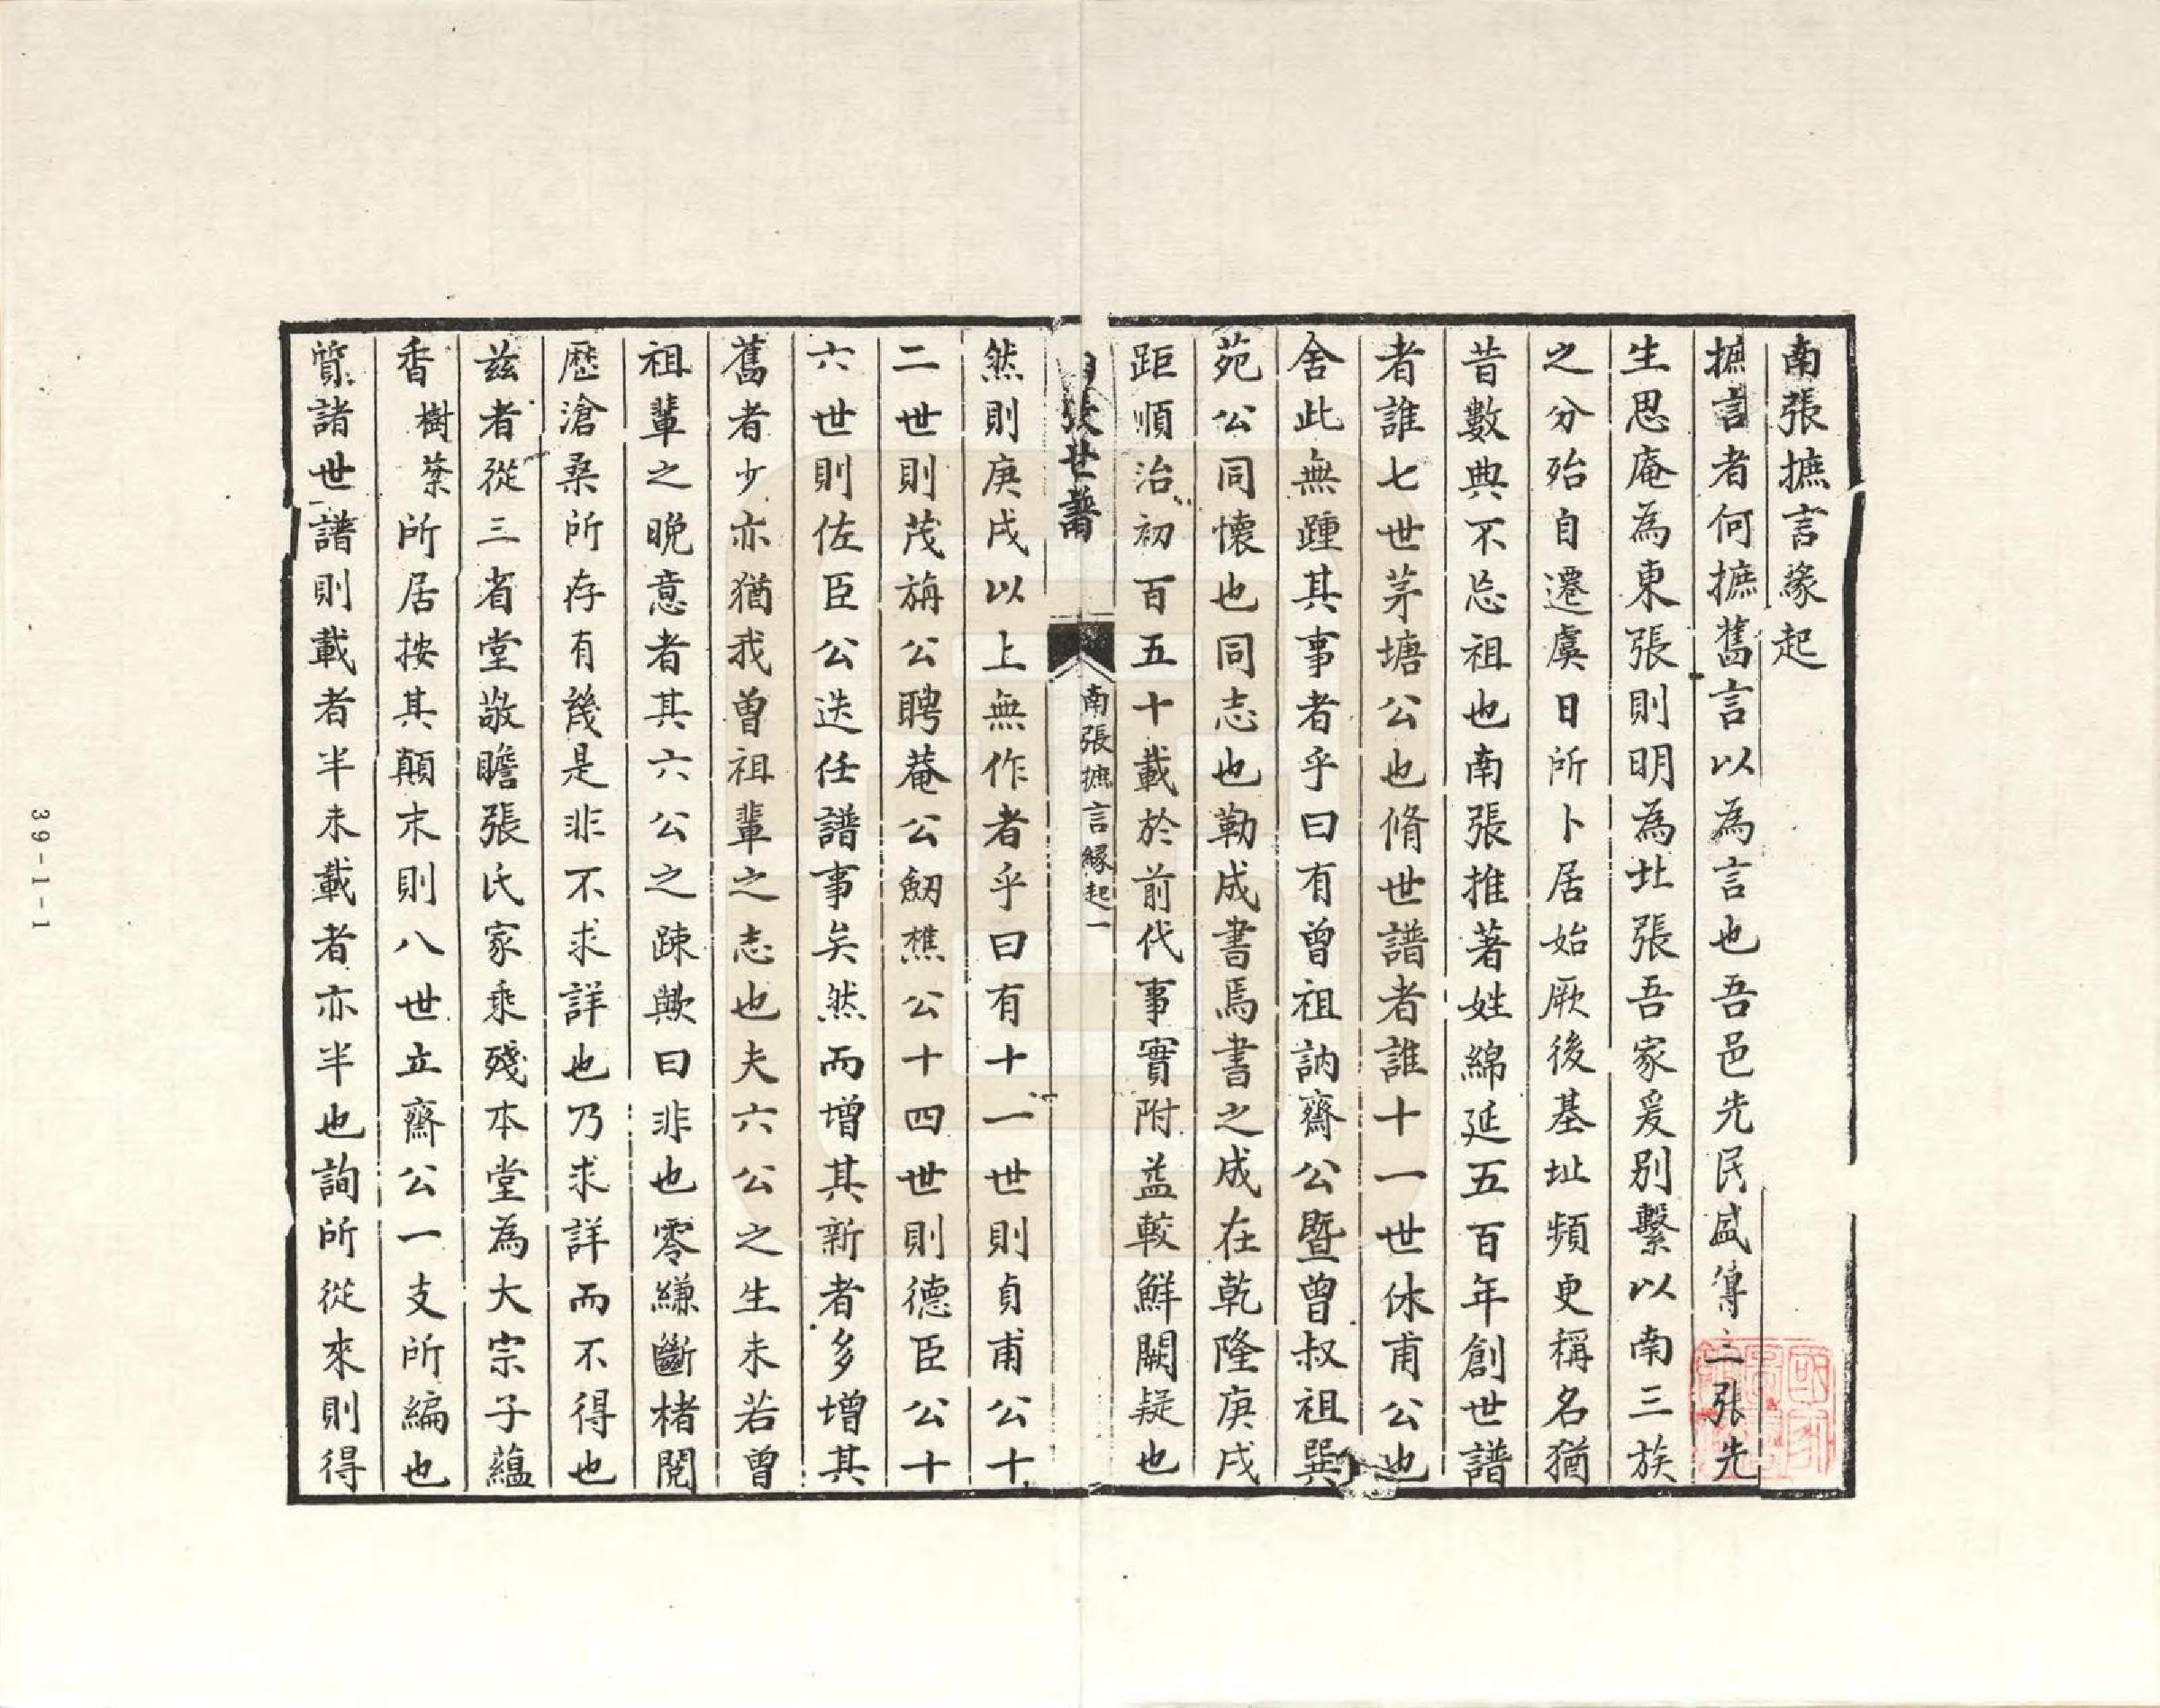 南張摭言緣起
摭言者何摭舊言以為言也吾邑先民盛傳三張先
生思庵為東張則明為北張吾家爰別繫以南三族
之分殆自遷虞日所卜居始厥後基址頻更稱名猶
昔數典不忘祖也南張推著姓綿延五百年創世譜
者誰七世茅塘公也脩世譜者誰十一世休甫公也
舍此無踵其事者乎曰有曾祖訥齋公暨曾叔祖巽
苑公同懷也同志也勒成書焉書之成在乾隆庚戌
距順治初百五十載於前代事實附益較鮮闕疑也
張世譜
南張摭言緣起一
然則庚戌以上無作者乎曰有十一世則貞甫公十
二世則茂旃公聘菴公劒樵公十四世則德臣公十
六世則佐臣公迭任譜事矣然而增其新者多增其
舊者少亦猶我曾祖輩之志也夫六公之生未若曾
祖輩之晚意者其六公之疎歟曰非也零縑斷楮閱
歷滄桑所存有幾是非不求詳也乃求詳而不得也
茲者從三省堂敬瞻張氏家乘殘本堂為大宗子蘊
香樹棻所居按其顛末則八世立齋公一支所編也
質諸世譜則載者半未載者亦半也詢所從來則得
39-1-1